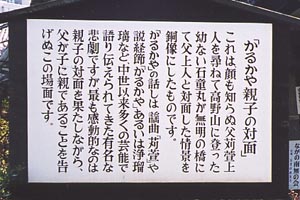 「かるかや親子の対面」
これは顔も知らぬ父苅萱上
人を尋ねて高野山に登った
幼ない石童丸が無明の橋に
て父上人と対面した情景を
銅像にしたものです。
かるかやの話しは謡曲「苅萱」や
説経節「かるかや」あるいは浄瑠
璃など、中世以来多くの芸能で
語り伝えられてきた有名な
悲劇ですが最も感動的なのは
親子の対面を果たしながら、
父が子に親であることを告
げぬこの場面です。